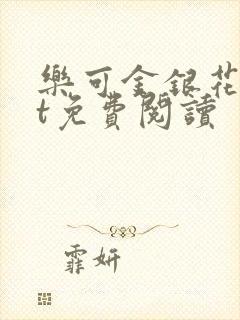 樂可金銀花
t免費閱讀
霏妍